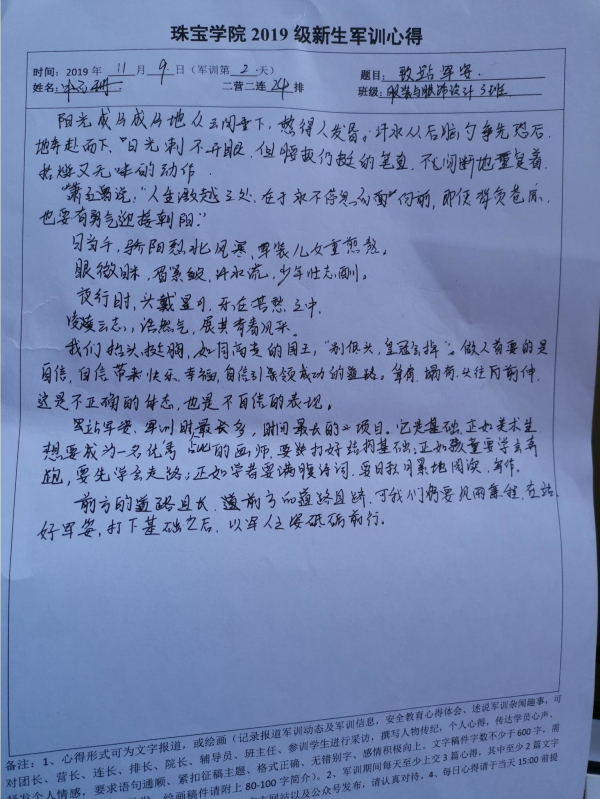 珠宝学院 2019 级新生军训心得
时间：2019 年 11 月 9 日（军训第 2 天） 题目：致站军姿
姓名： 二营二连 24 排 班级：服装与服饰设计3班
阳光成片成片地从云间垂下，热得人发昏。汗水从后脑勺争先恐后
地奔赴而下，日光刺不开眼，但腰板仍挺的笔直，不间断地重复着
枯燥又无味的动作。
"人生激越之处，在于永不停息的向前，即使背负苍凉，
也要有勇气迎接朝阳。"
日当午，骄阳烈，北风寒，军装儿女重煎熬。
眼微眯，眉紧皱，汗水流，少年壮志酬。
夜行时，头戴星月，乐在苦愁之中
凌凌云志，浩然气，展其青春风采。
我们抬头，挺胸，如同高贵的国王，"别低头，皇冠会掉"。做人首要的是
自信，自信带来快乐、幸福，自信引领成功的道路。耸肩、塌背、头往向前伸，
这是不正确的体态，也是不自信的表现。
站军姿，军训时最多，时间最长的项目。它是基础，正如美术生
想要成为一名优秀的画师，要先打好结构基础；正如孩童要学会奔
跑，要先学会走路；正如学者要满腹诗词，要日积月累地阅读，写作。
前方的道路且长，道前方的道路且跻，可我们将要风雨兼程，在站
好军姿，打下基础之后，以军人之姿砥砺前行。
备注：1、心得形式可为文字报道，或绘画（记录报道军训动态及军训信息，安全教育心得体会、述说军训杂闻趣事，可
对团长、营长、连长、排长、院长、辅导员、班主任、参训学生进行采访，撰写人物传记，个人心得，传达学员心声、
抒发个人情感，要求语句通顺、紧扣征稿主题、格式正确、无错别字、感情积极向上。文字稿件字数不少于 600 字，需
绘画稿件请附上 80-100 字简介）。2、军训期间每天至少上交 3 篇心得，其中至少 2 篇文字
网站以及公众号发布，请认真对待。4、每日心得请于当天 15:00 前提